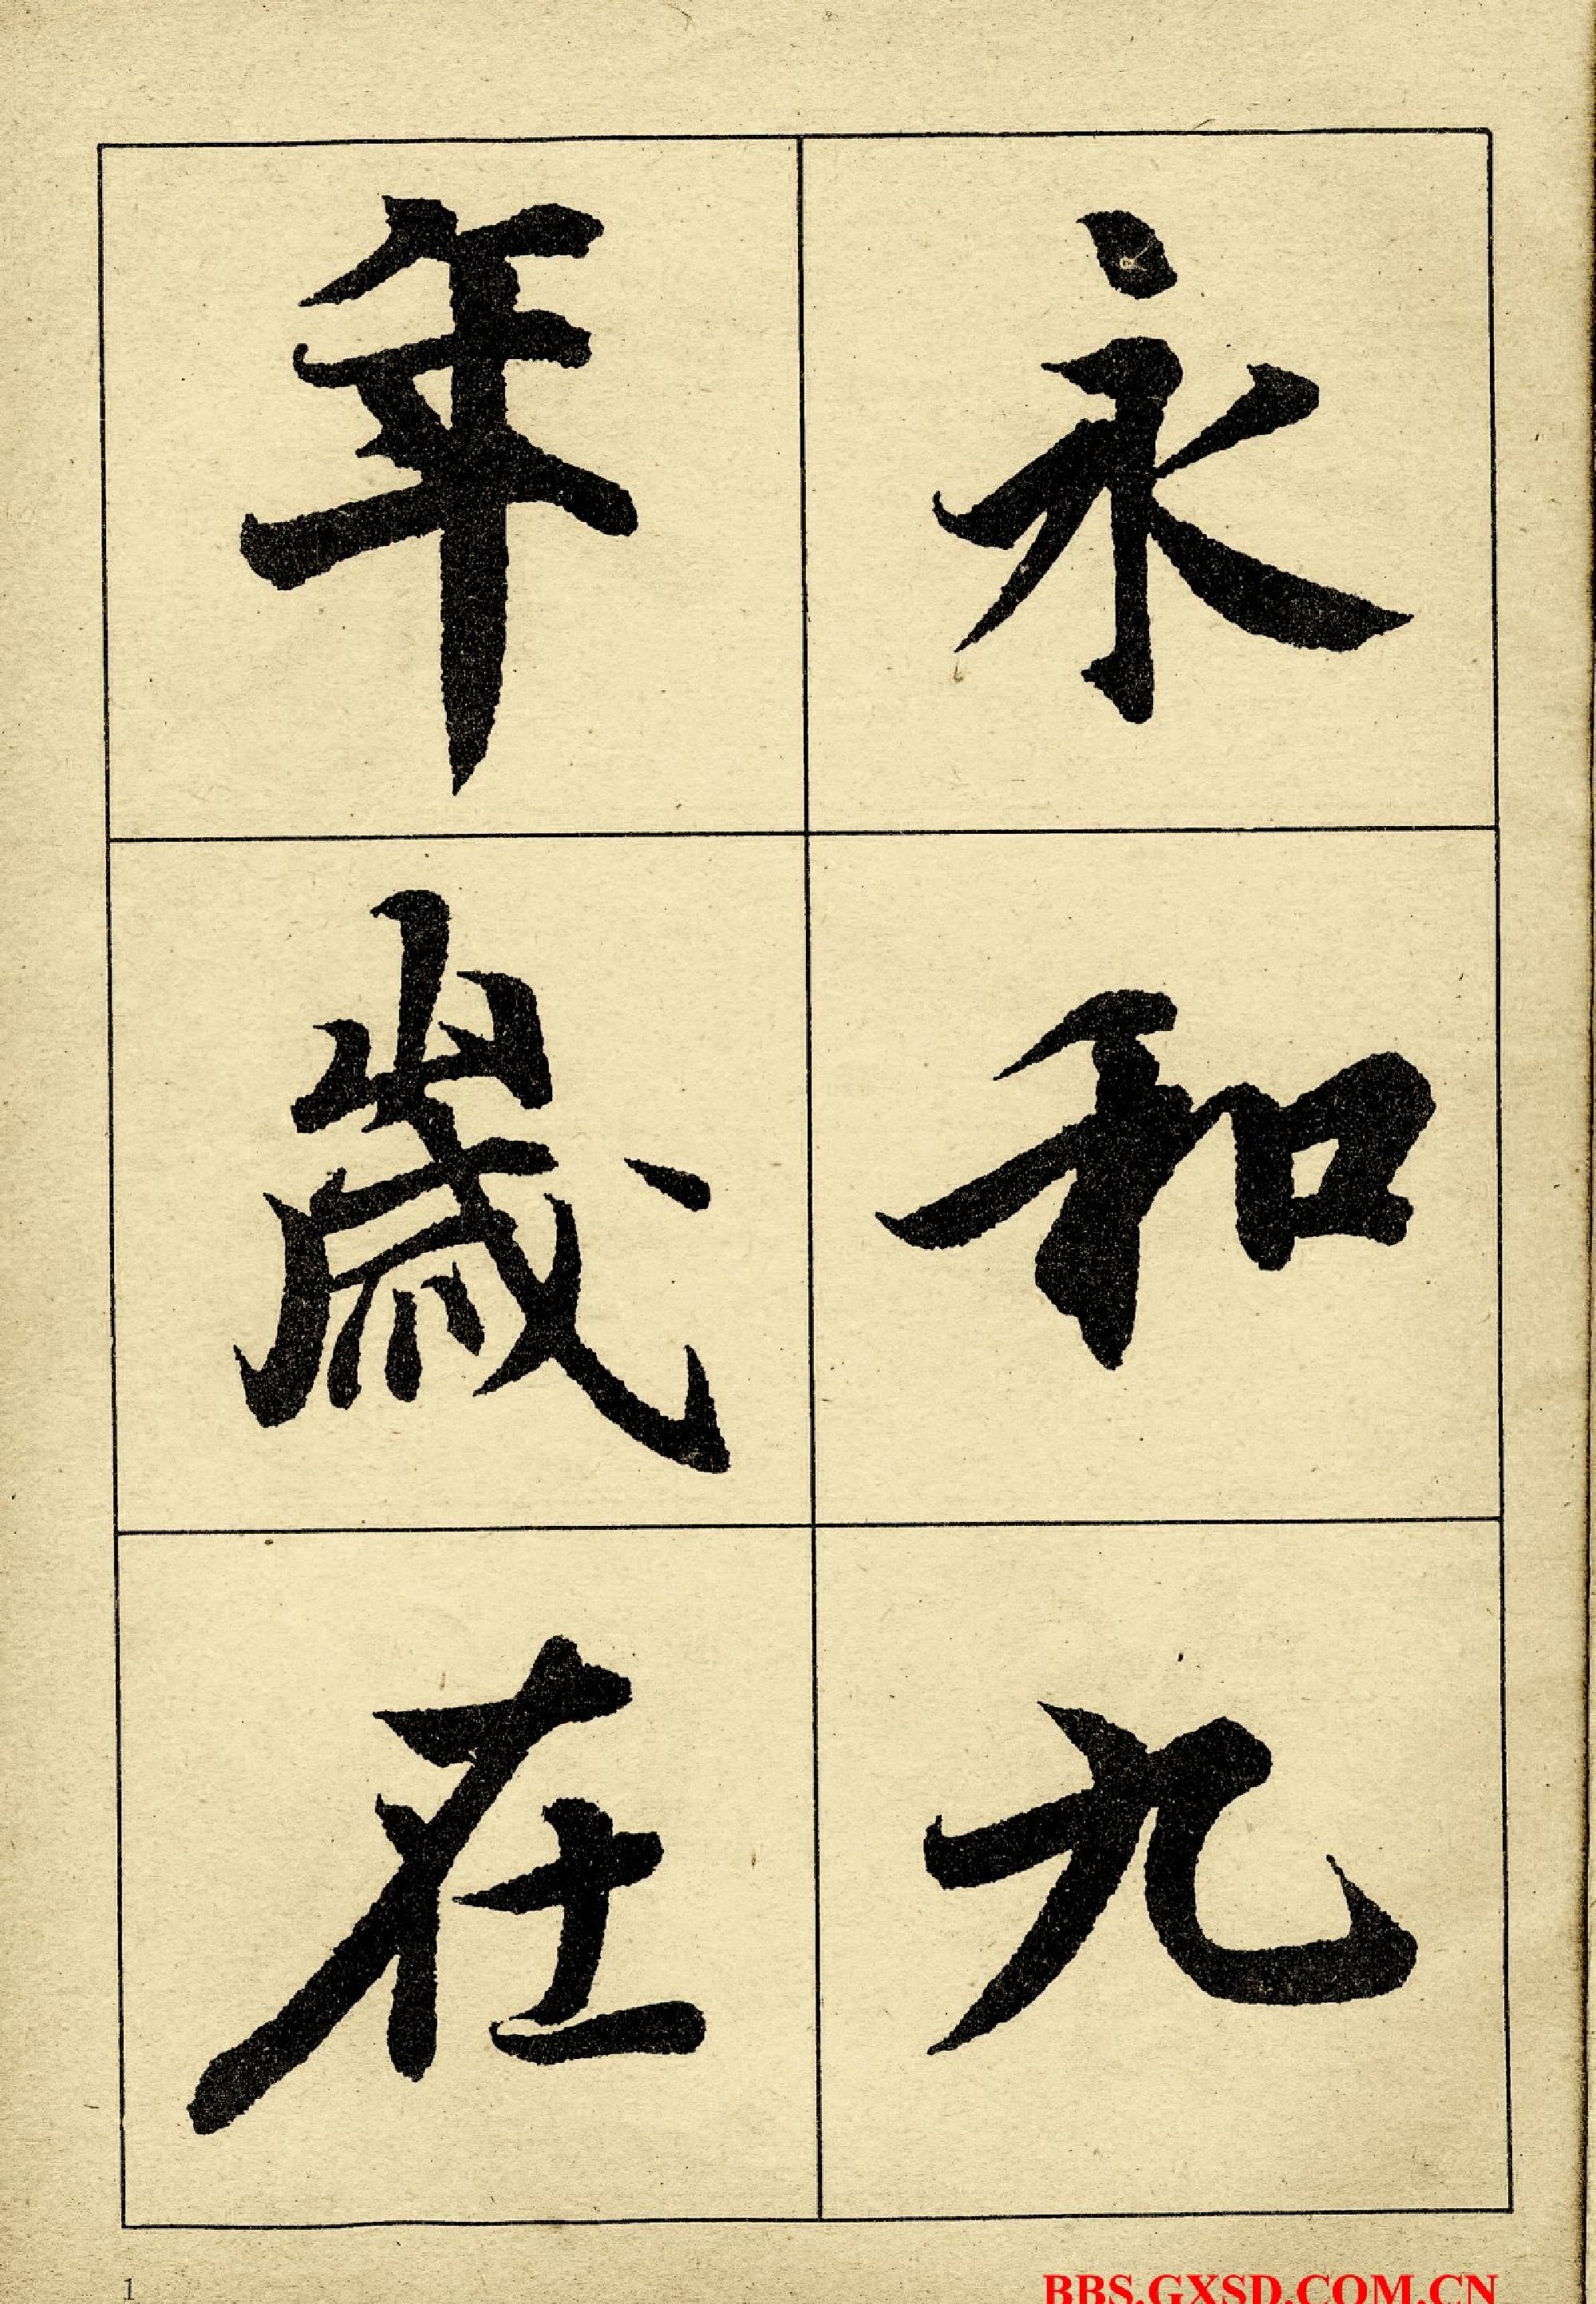 永和九
年歲在
1
BBS.GXSD.COM.CN